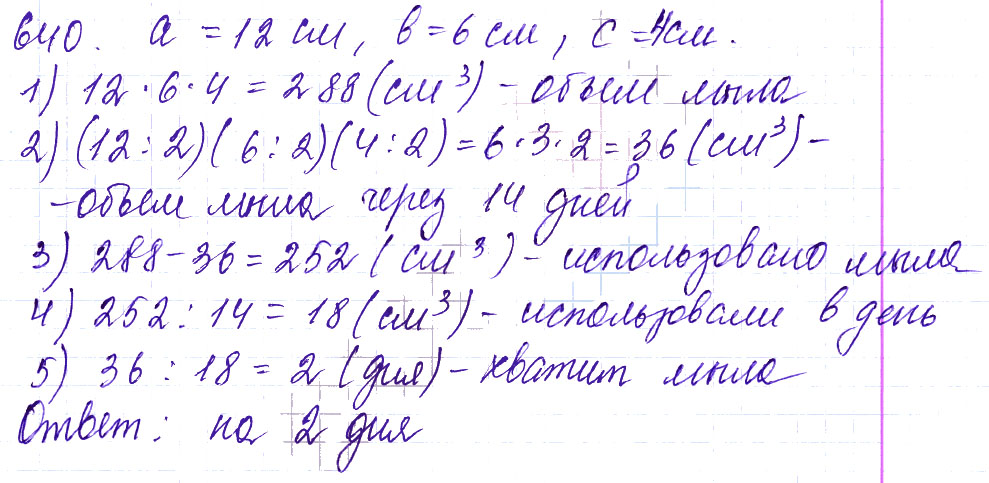 640. a = 12 см, в = 6 см, с = 4см.
1) 12 · 6 · 4 = 288 (см³) - объем мыла
2) (12 : 2)(6 : 2)(4 : 2) = 6 · 3 · 2 = 36 (см³) -
- объем мыла через 14 дней
3) 288 - 36 = 252 (см³) - использовано мыла
4) 252 : 14 = 18 (см³) - использовали в день
5) 36 : 18 = 2 (дня) - хватит мыла
Ответ: на 2 дня